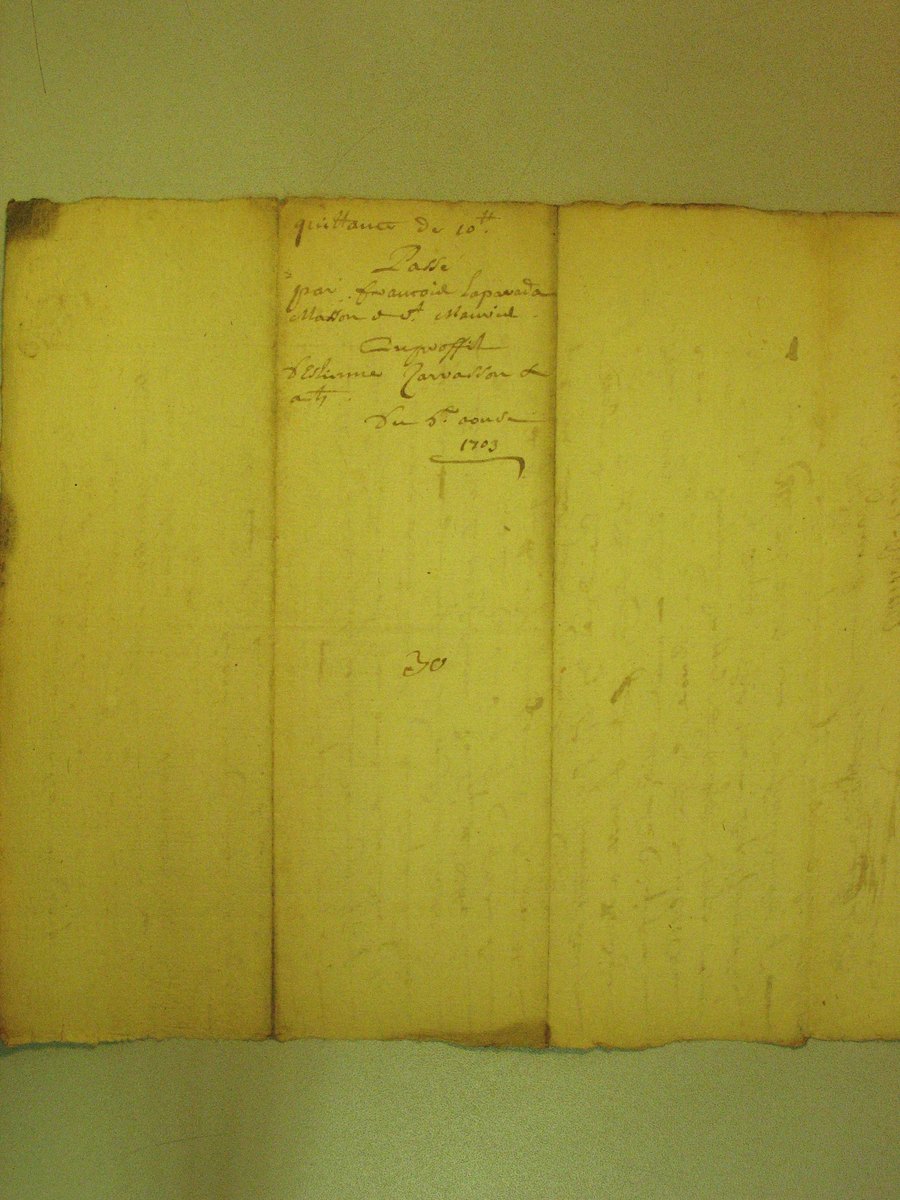 quittance de 10tt.
Passé
par francois Laparada
Masson de st. Meurice
Au proffit
d'Estienne Zarvasson &
a
du 5e aoust
1703
30